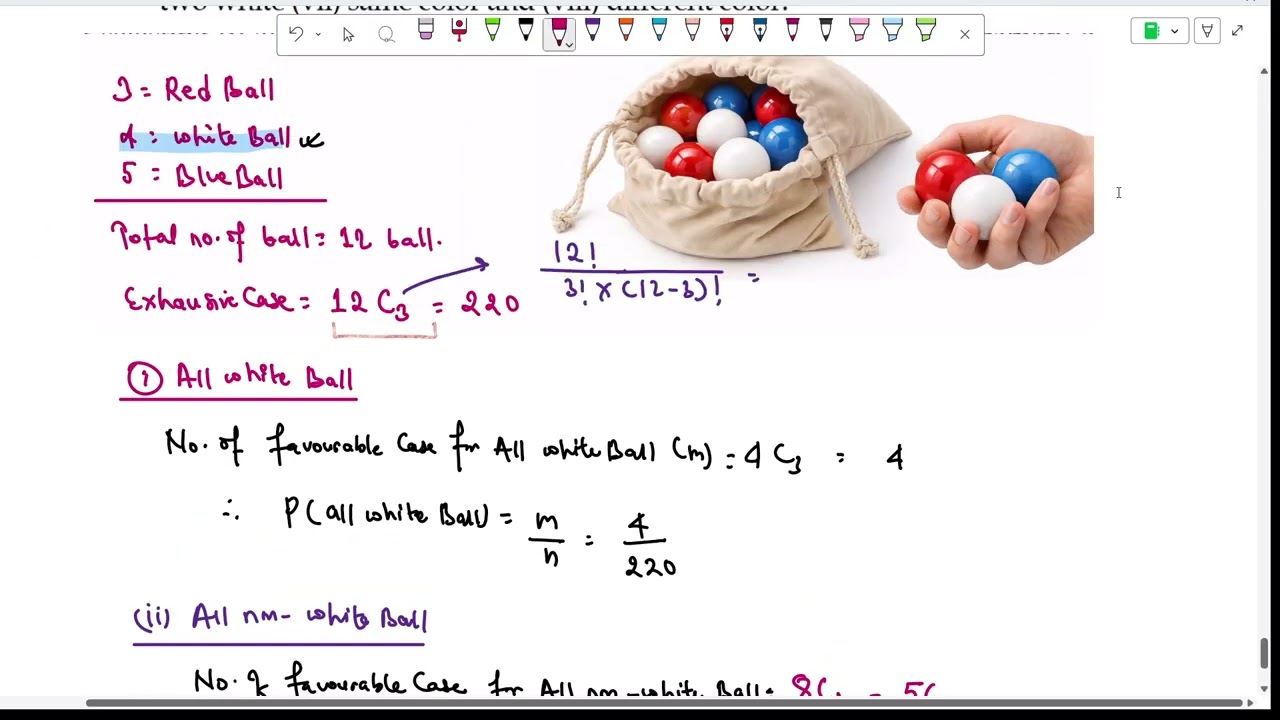 two white (vii) same color and (viii) different color.
3 = Red Ball
4 : white Ball
5 = Blue Ball
Total no. of ball = 12 ball.
12!
3! × (12-3)! =
Exhausive Case = 12 C3 = 220
① All white Ball
No. of favourable Case for All white Ball (m) = 4 C3 = 4
∴ P(all white Ball) = m/n = 4/220
(ii) All non-white Ball
No. of favourable Case for All non-white Ball =